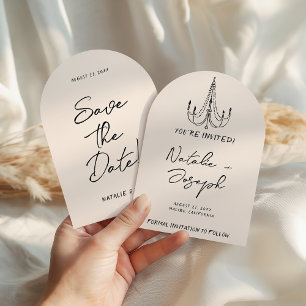 AUGUST 22, 20XX
Save
The
Date!
NATALIE
YOU'RE INVITED!
Natalie -
Joseph
AUGUST 22, 20XX
MALIBU, CALIFORNIA
FORMAL INVITATION TO FOLLOW